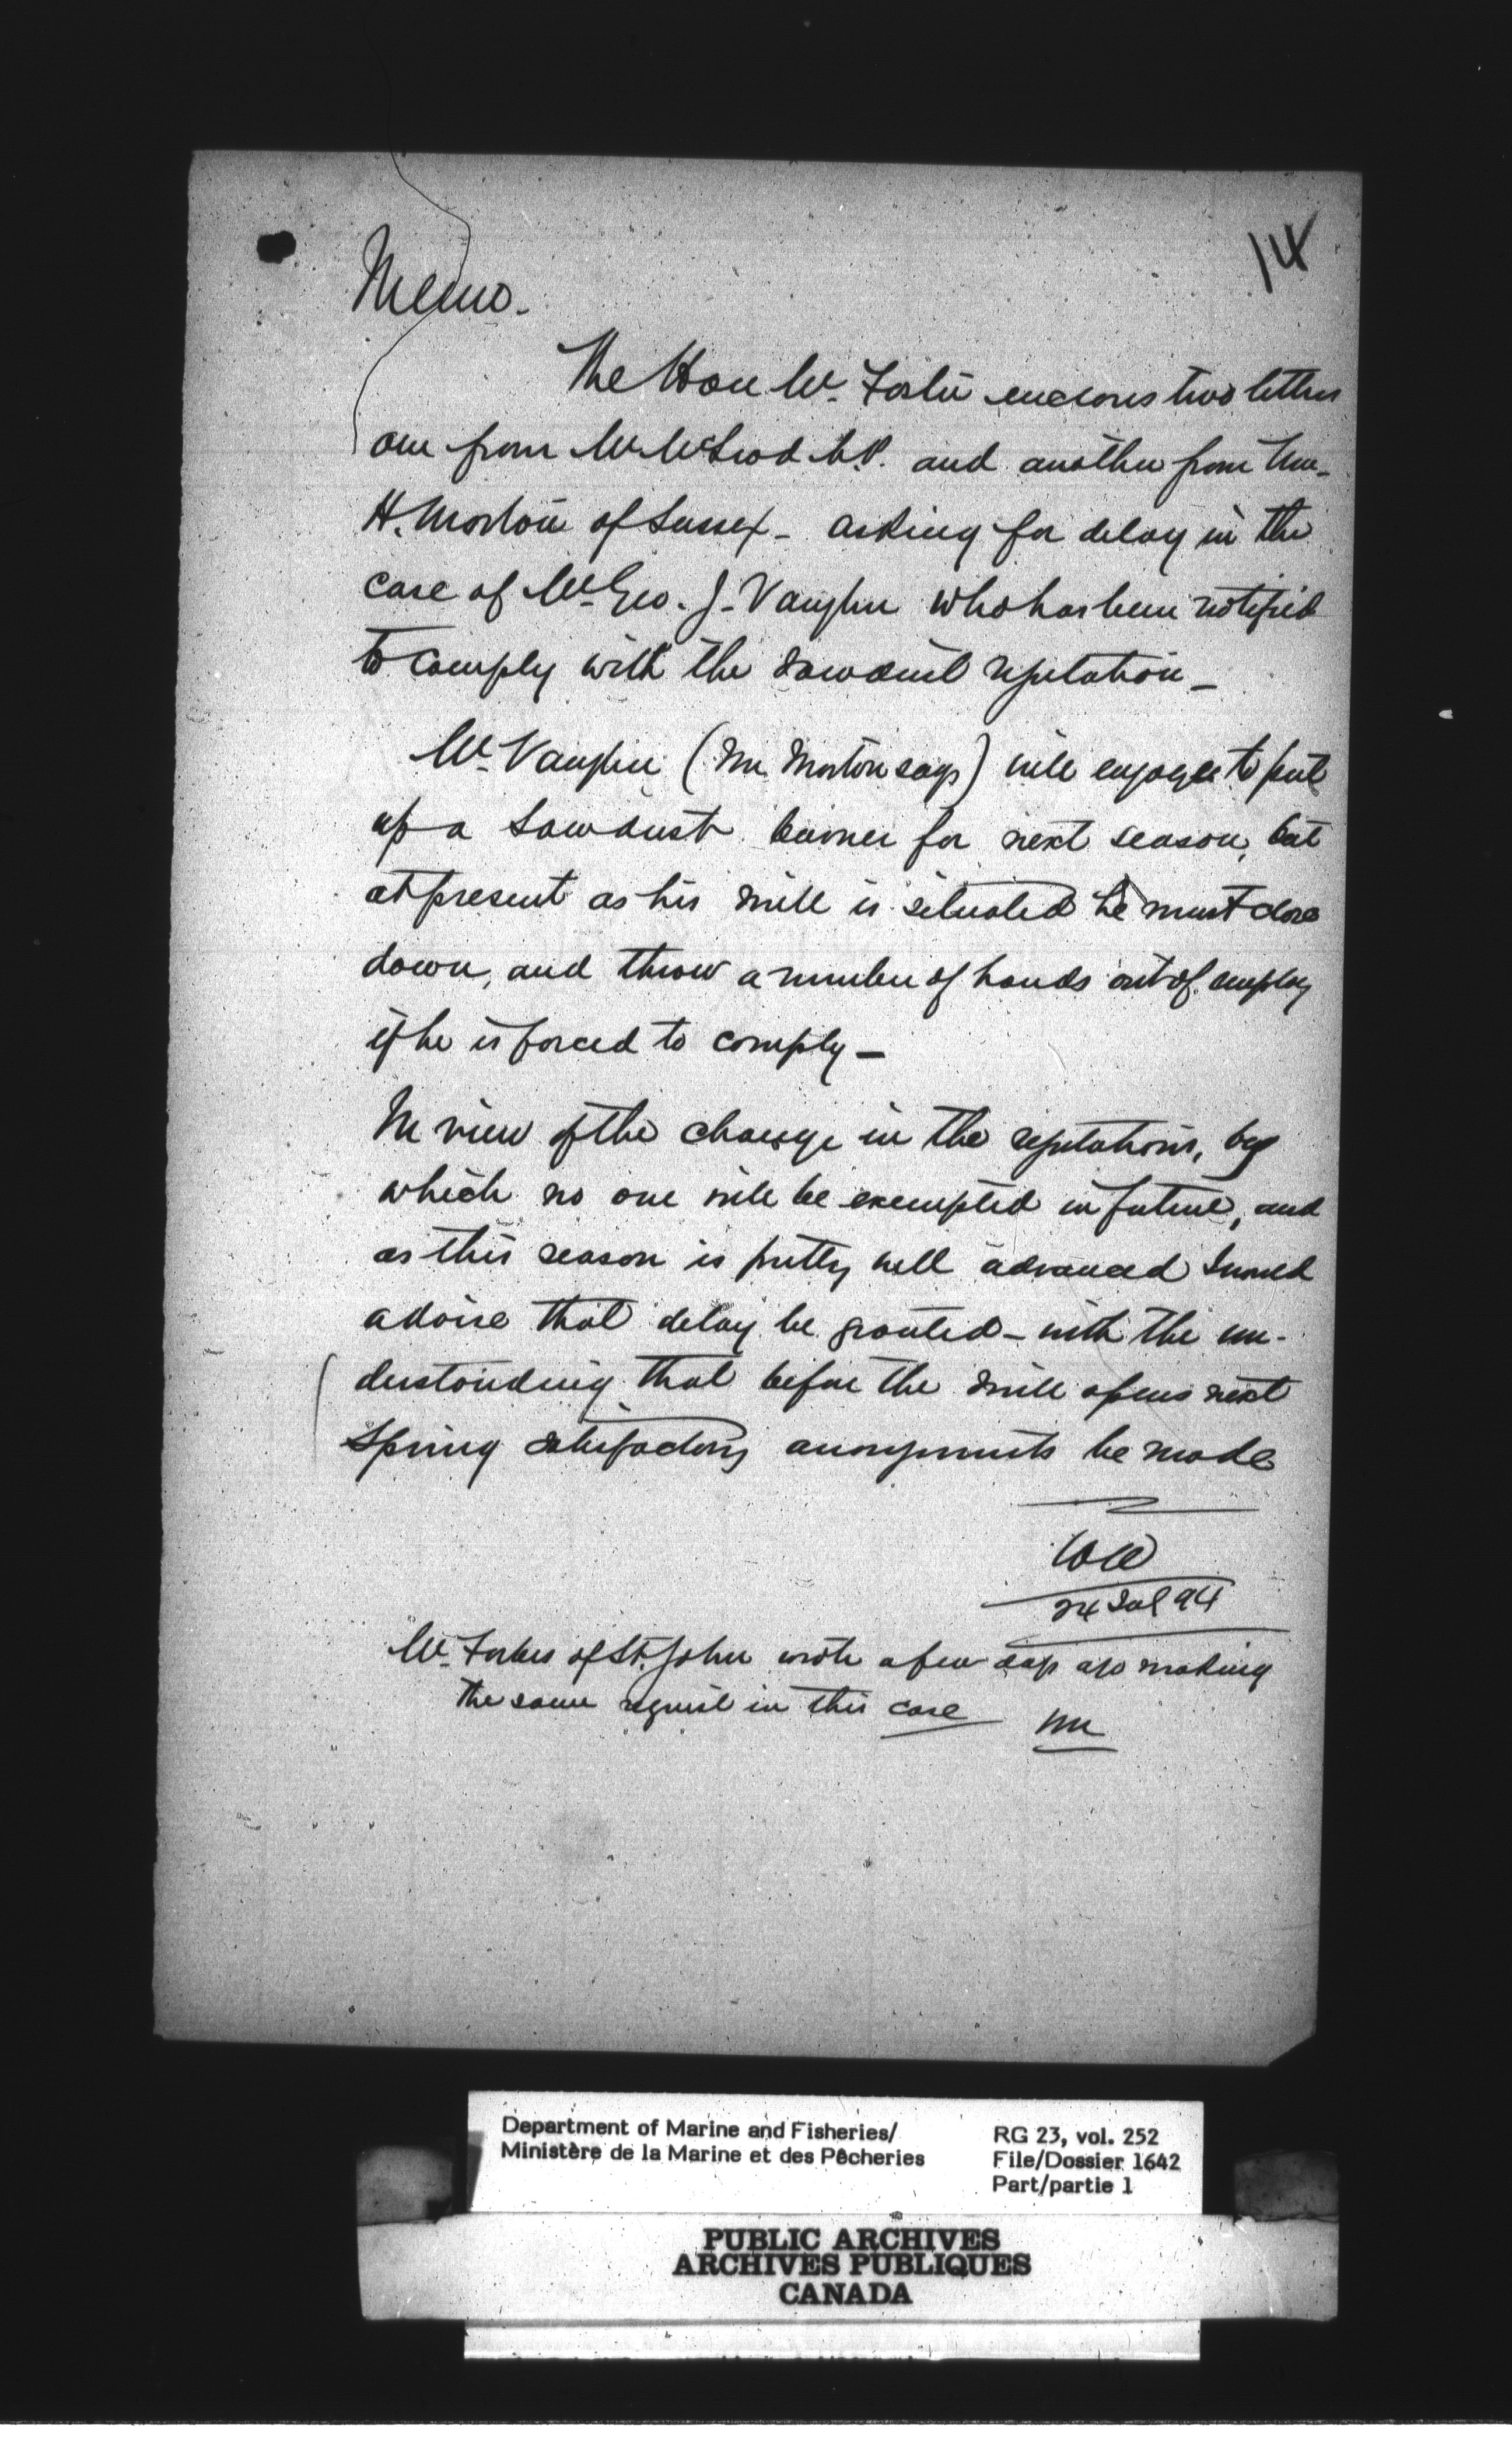 14
Memo.
The Hon Mr. Foster encloses two letters
one from Mr McLeod M.P. and another from Mr.
H. Morton of Sussex - asking for delay in the
case of Mr. Geo. J. Vaughn who has been notified
to comply with the sawdust regulation -
Mr. Vaughn (Mr. Morton says) will engage to put
up a sawdust burner for next season, but
at present as his mill is situated he must close
down, and throw a number of hands out of employ
if he is forced to comply -
In view of the change in the regulations, by
which no one will be exempted in future, and
as this season is pretty well advanced I would
advise that delay be granted - with the un-
derstanding that before the mill opens next
Spring satisfactory arrangements be made
24 Jul 94
Mr. Forbes of St. John wrote a few days ago making
the same request in this case
Department of Marine and Fisheries/
Ministère de la Marine et des Pêcheries
RG 23, vol. 252
File/Dossier 1642
Part/partie 1
PUBLIC ARCHIVES
ARCHIVES PUBLIQUES
CANADA